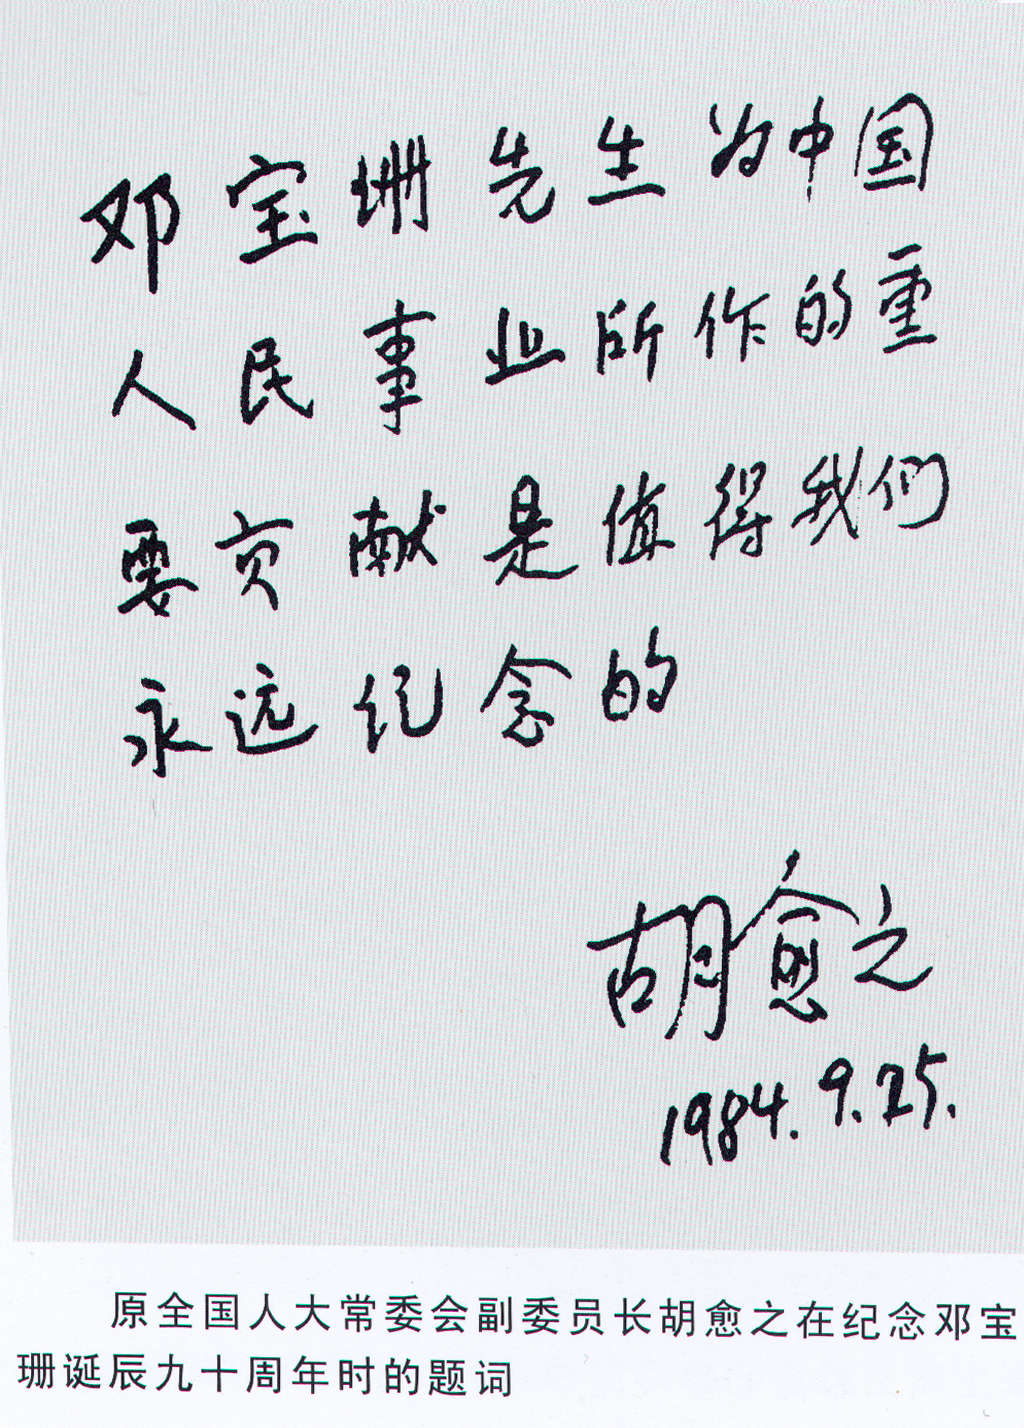 邓宝珊先生为中国
人民事业所作的重
要贡献是值得我们
永远纪念的
胡愈之
1984.9.25.
原全国人大常委会副委员长胡愈之在纪念邓宝
珊诞辰九十周年时的题词